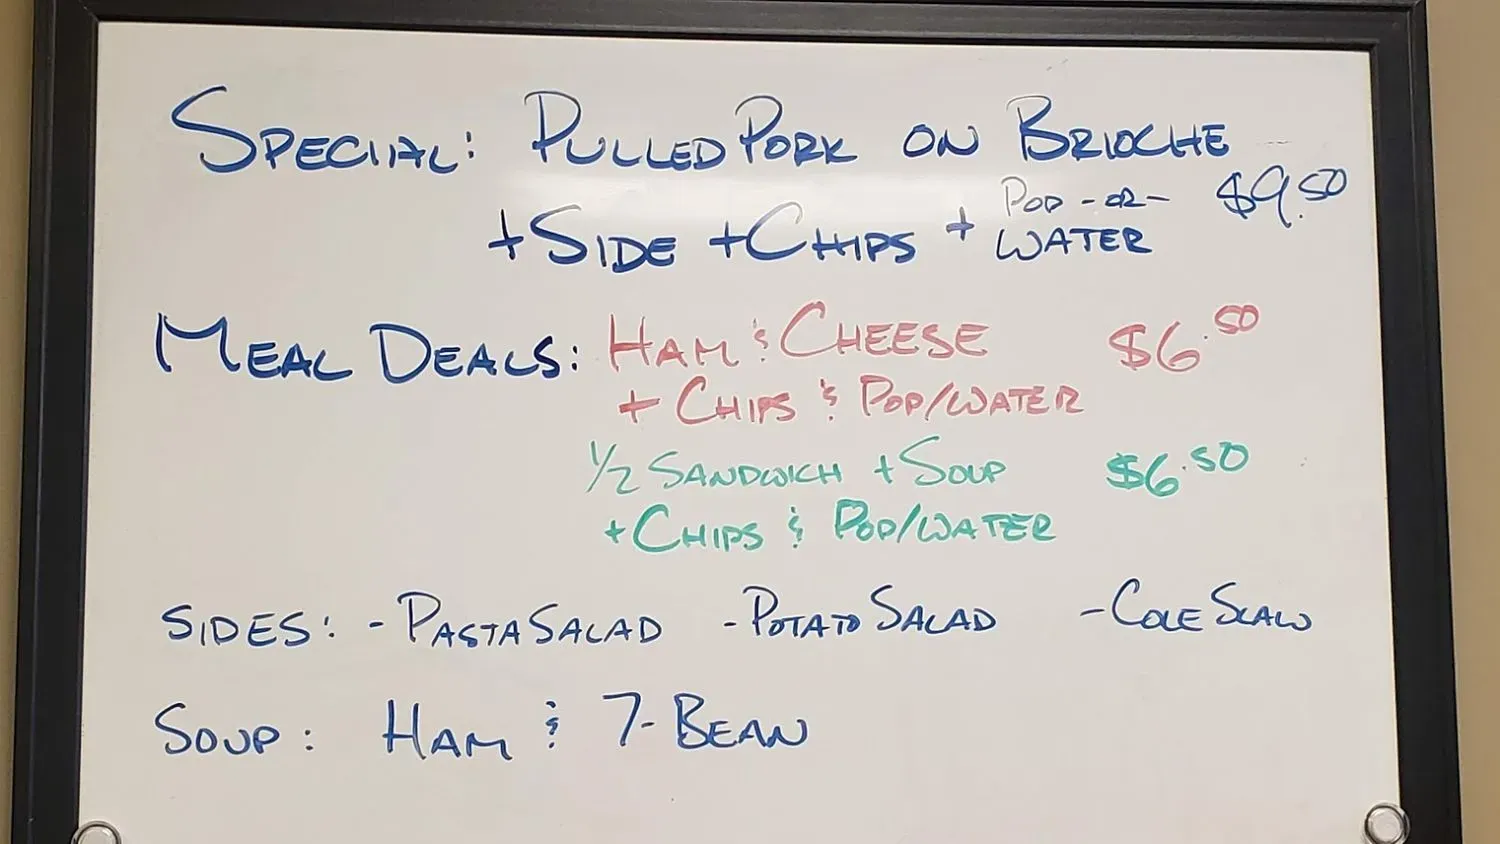 SPECIAL: PULLED PORK ON BRIOCHE
+ SIDE + CHIPS + POP -OR- WATER $9.50
MEAL DEALS: HAM & CHEESE $6.50
+ CHIPS & POP/WATER
1/2 SANDWICH + SOUP $6.50
+ CHIPS & POP/WATER
SIDES: - PASTA SALAD - POTATO SALAD - COLE SLAW
SOUP: HAM & 7-BEAN